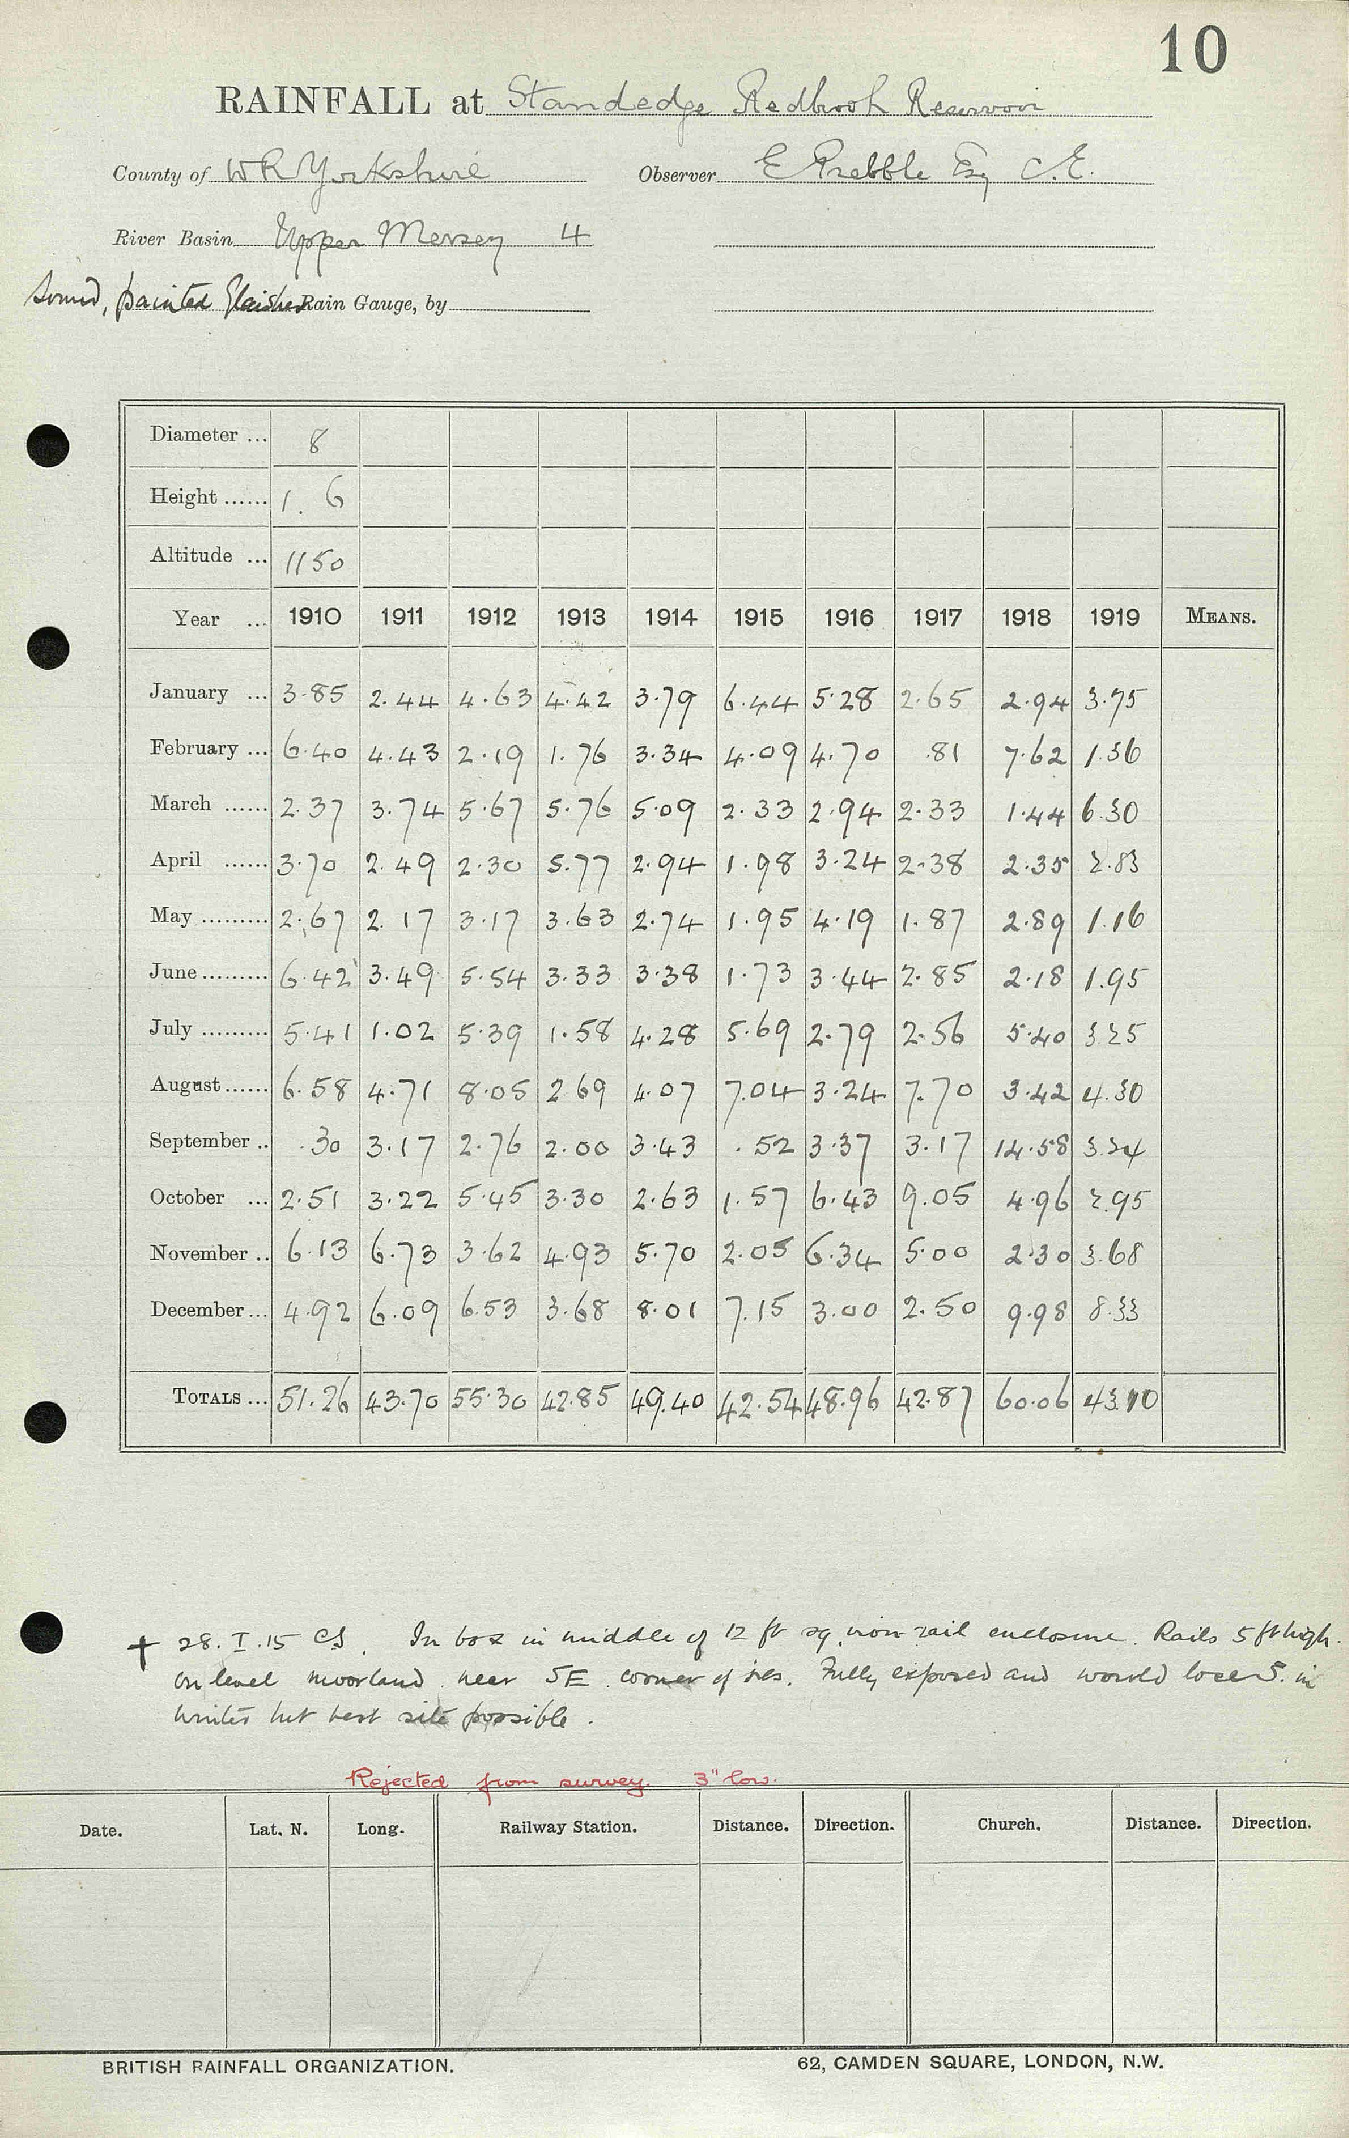 10
RAINFALL at Standedge Redbrook Reservoir
County of WR Yorkshire Observer E Prebble Esq C.E.
River Basin Upper Mersey 4
Sound, painted Glaisher Rain Gauge, by
Diameter ... 8
Height ...... 1. 6
Altitude ... 1150
Year ... 1910 1911 1912 1913 1914 1915 1916 1917 1918 1919 MEANS.
January ... 3.85 2.44 4.63 4.42 3.79 6.44 5.28 2.65 2.94 3.75
February ... 6.40 4.43 2.19 1.76 3.34 4.09 4.70 .81 7.62 1.36
March ...... 2.37 3.74 5.67 5.76 5.09 2.33 2.94 2.33 1.44 6.30
April ...... 3.70 2.49 2.30 5.77 2.94 1.98 3.24 2.38 2.35 2.83
May ......... 2.67 2.17 3.17 3.63 2.74 1.95 4.19 1.87 2.89 1.16
June ......... 6.42 3.49 5.54 3.33 3.38 1.73 3.44 2.85 2.18 1.95
July ......... 5.41 1.02 5.39 1.58 4.28 5.69 2.79 2.56 5.40 3.25
August ...... 6.58 4.71 8.05 2.69 4.07 7.04 3.24 7.70 3.42 4.30
September .. .30 3.17 2.76 2.00 3.43 .52 3.37 3.17 14.58 3.34
October ... 2.51 3.22 5.45 3.30 2.63 1.57 6.43 9.05 4.96 2.95
November .. 6.13 6.73 3.62 4.93 5.70 2.05 6.34 5.00 2.30 3.68
December ... 4.92 6.09 6.53 3.68 8.01 7.15 3.00 2.50 9.98 8.33
TOTALS ... 51.26 43.70 55.30 42.85 49.40 42.54 48.96 42.87 60.06 43.10
+ 28.I.15 CS. In box in middle of 12 ft sq iron rail enclosure. Rails 5 ft high.
On level moorland near SE corner of res. Fully exposed and would lose S. in
winter but best site possible.
Rejected from survey. 3" low.
Date. Lat. N. Long. Railway Station. Distance. Direction. Church. Distance. Direction.
BRITISH RAINFALL ORGANIZATION. 62, CAMDEN SQUARE, LONDON, N.W.